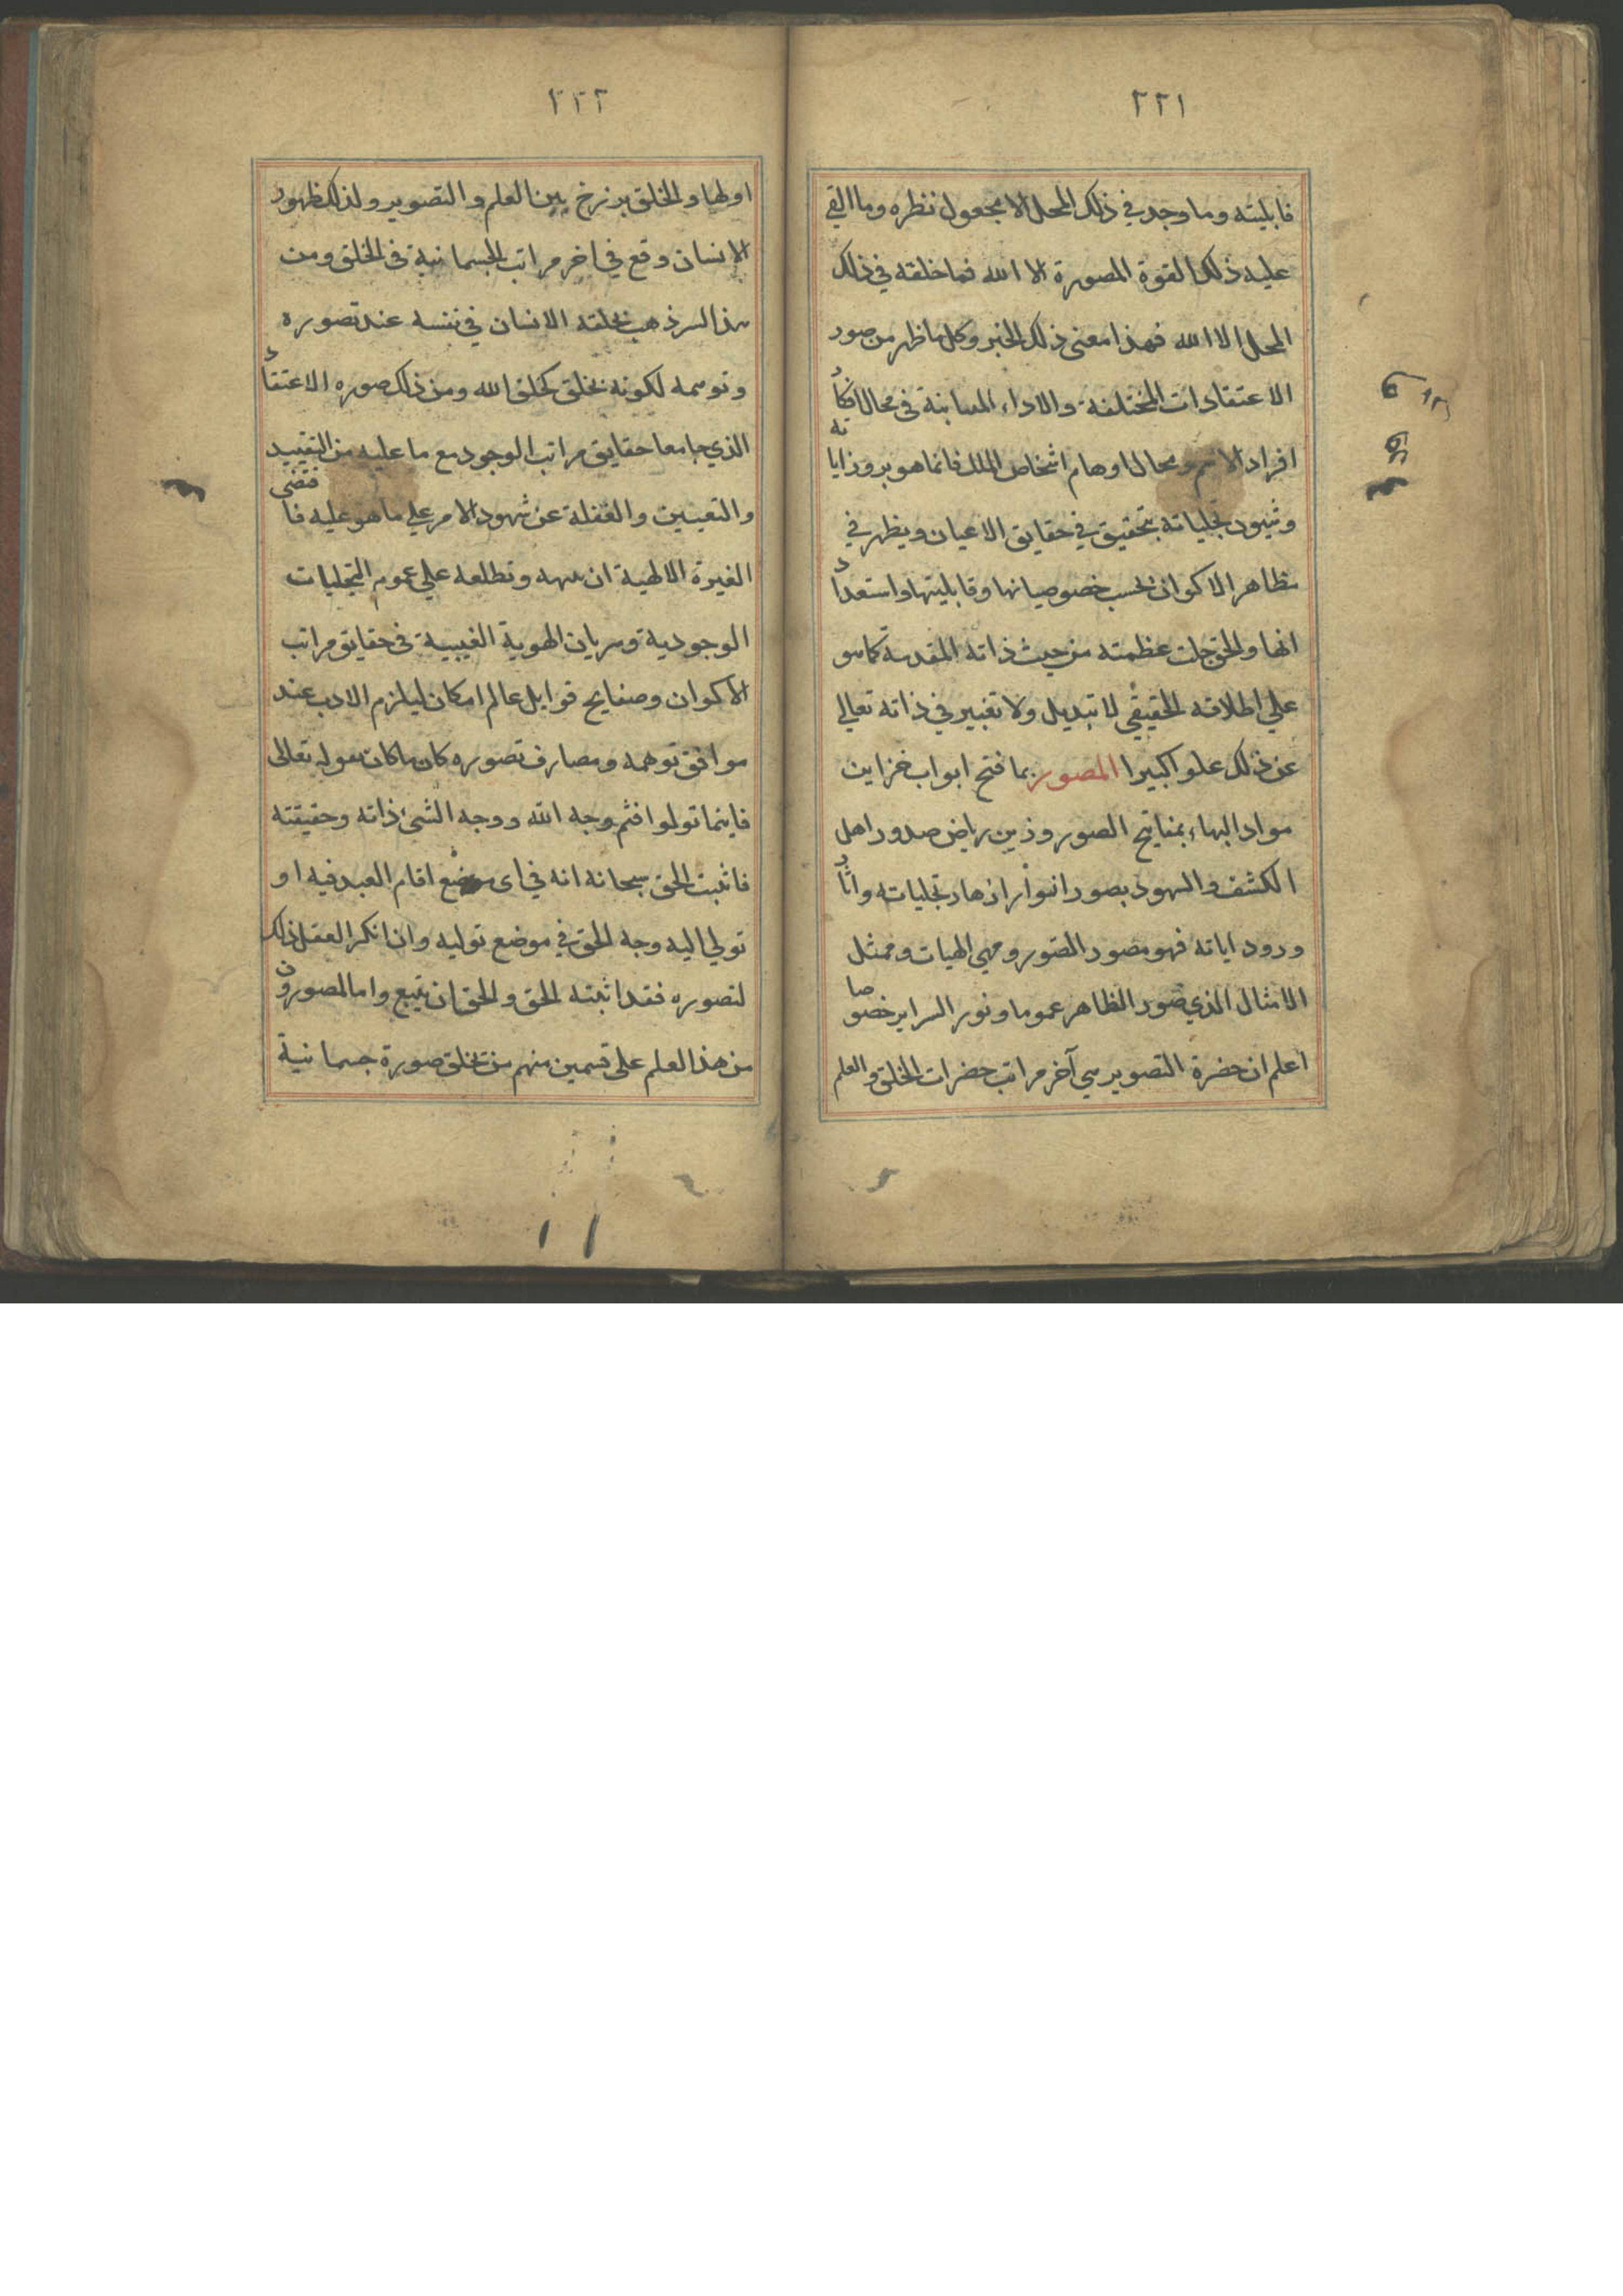 ٢٢١
قابليته وما وجد في ذلك المحل الا مجعول نظره وما القي
عليه ذلك القوة المصورة الا الله فما خلقه في ذلك
المحل الا الله فهذا معنى ذلك الخبر وكل ما ظهر من صور
الاعتقادات المختلفة والاراء المتباينة في محال افكار
افراد الامم ومحال اوهام اشخاص الملل فانما هو بروز اياته
وشيون تجلياته بتحقيق في حقايق الاعيان ويظهر في
مظاهر الاكوان بحسب خصوصياتها وقابليتها واستعدا
اتها والحق جلت عظمته من حيث ذاته المقدسة كما هو
علي اطلاقه الحقيقي لا تبديل ولا تغيير في ذاته تعالي
عن ذلك علوا كبيرا المصور بما فتح ابواب خزاين
مواد البهاء بمفاتيح الصور وزين رياض صدور اهل
الكشف والشهود بصور انوار ازهار تجلياته واثار
ورود اياته فهو مصور الصور ومهيي الهيات وممثل
الامثال الذي صور الظاهر عموما ونور السراير خصوصا
اعلم ان حضرة التصوير هي آخر مراتب حضرات الخلق والعلم
٢٢٢
اولها والخلق برزخ بين العلم والتصوير ولذلك ظهور
الانسان وقع في اخر مراتب الجسمانية في الخلق ومن
هذا السر ذهب بخلقه الانسان في نفسه عند تصوره
وتوهمه لكونه بخلق كخلق الله ومن ذلك صوره الاعتقاد
الذي جامعا حقايق مراتب الوجود مع ما عليه من التقييد
والتعيين والغفلة عن شهود الامر علي ما هو عليه فاقتضى
الغيرة الالهية ان وتطلعه علي عموم التجليات
الوجودية وسريان الهوية الغيبية في حقايق مراتب
الاكوان وصفايح قوابل عالم امكان ليلزم الادب عند
موافق توهمه ومصارف تصوره كان ما كان بقوله تعالى
فاينما تولوا فثم وجه الله ووجه الشئ ذاته وحقيقته
فاثبت الحق سبحانه انه في اى موضع اقام العبد فيه او
تولي اليه وجه الحق في موضع توليه وان انكر العقل ذلك
لتصوره فقد اثبته الحق والحق ان يتبع واما المصورون
من هذا العلم على قسمين منهم من تخلق صورة جسمانية